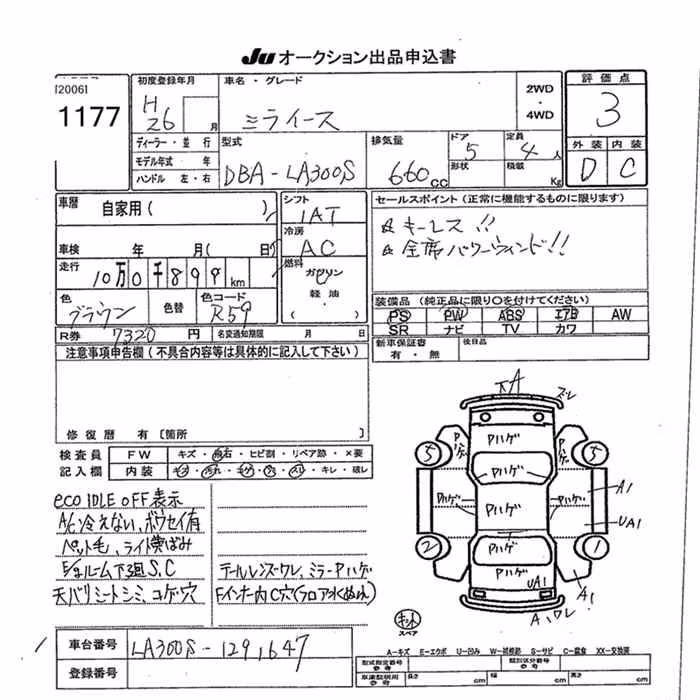 JU オークション出品申込書
[2006]
1177
初度登録年月
H26 月
車名・グレード
ミライース
2WD
・
4WD
評価点
3
外装 内装
D C
ディーラー・並行
モデル年式・年
ハンドル 左・右
型式
DBA-LA300S
排気量
660cc
ドア
5
形状
定員
4人
積載
Kg
車歴
自家用( )
車検 年 月( 日)
走行 10万0千899km
シフト
IAT
冷房
AC
燃料
ガソリン
・
軽油
( )
セールスポイント(正常に機能するものに限ります)
キーレス!!
全席パワーウィンド!!
色
ブラウン
色替
色コード
R59
R券 7320円
名変通知期限 月 日
装備品(純正品に限り○を付けてください)
PS PW ABS エアB AW
SR ナビ TV カワ
新車保証書
有・無
後日品
注意事項申告欄(不具合内容等は具体的に記入して下さい)
修復歴 有〔箇所 〕
検査員
記入欄
FW キズ・飛石・ヒビ割・リペア跡・×要
内装 キズ・汚れ・コゲ・穴・スレ・キレ・破レ
eco IDLE OFF表示
A/C冷えない、ボウセイ有
ペット毛、ライト黄ばみ
E/gルーム下廻S,C
天バリミートシミ、コゲ穴
テールレンズワレ、ミラーPハゲ
Fインナー内C穴(フロア水ぬれ)
天A
ズレ
Pハゲ
Pハゲ
Pハゲ
5
5
Pハゲ
Pハゲ
Pハゲ
Pハゲ
A1
UA1
2
1
Pハゲ
UA1
A1
A,ワレ
キット
スペア
A-キズ E-エクボ U-凹み W-補修跡 S-サビ C-腐食 XX-交換済
車台番号 LA300S-1291647
登録番号
型式指定番号
参考
類別区分番号
参考
車庫証明用
参考
長さ cm 幅 cm 高さ cm